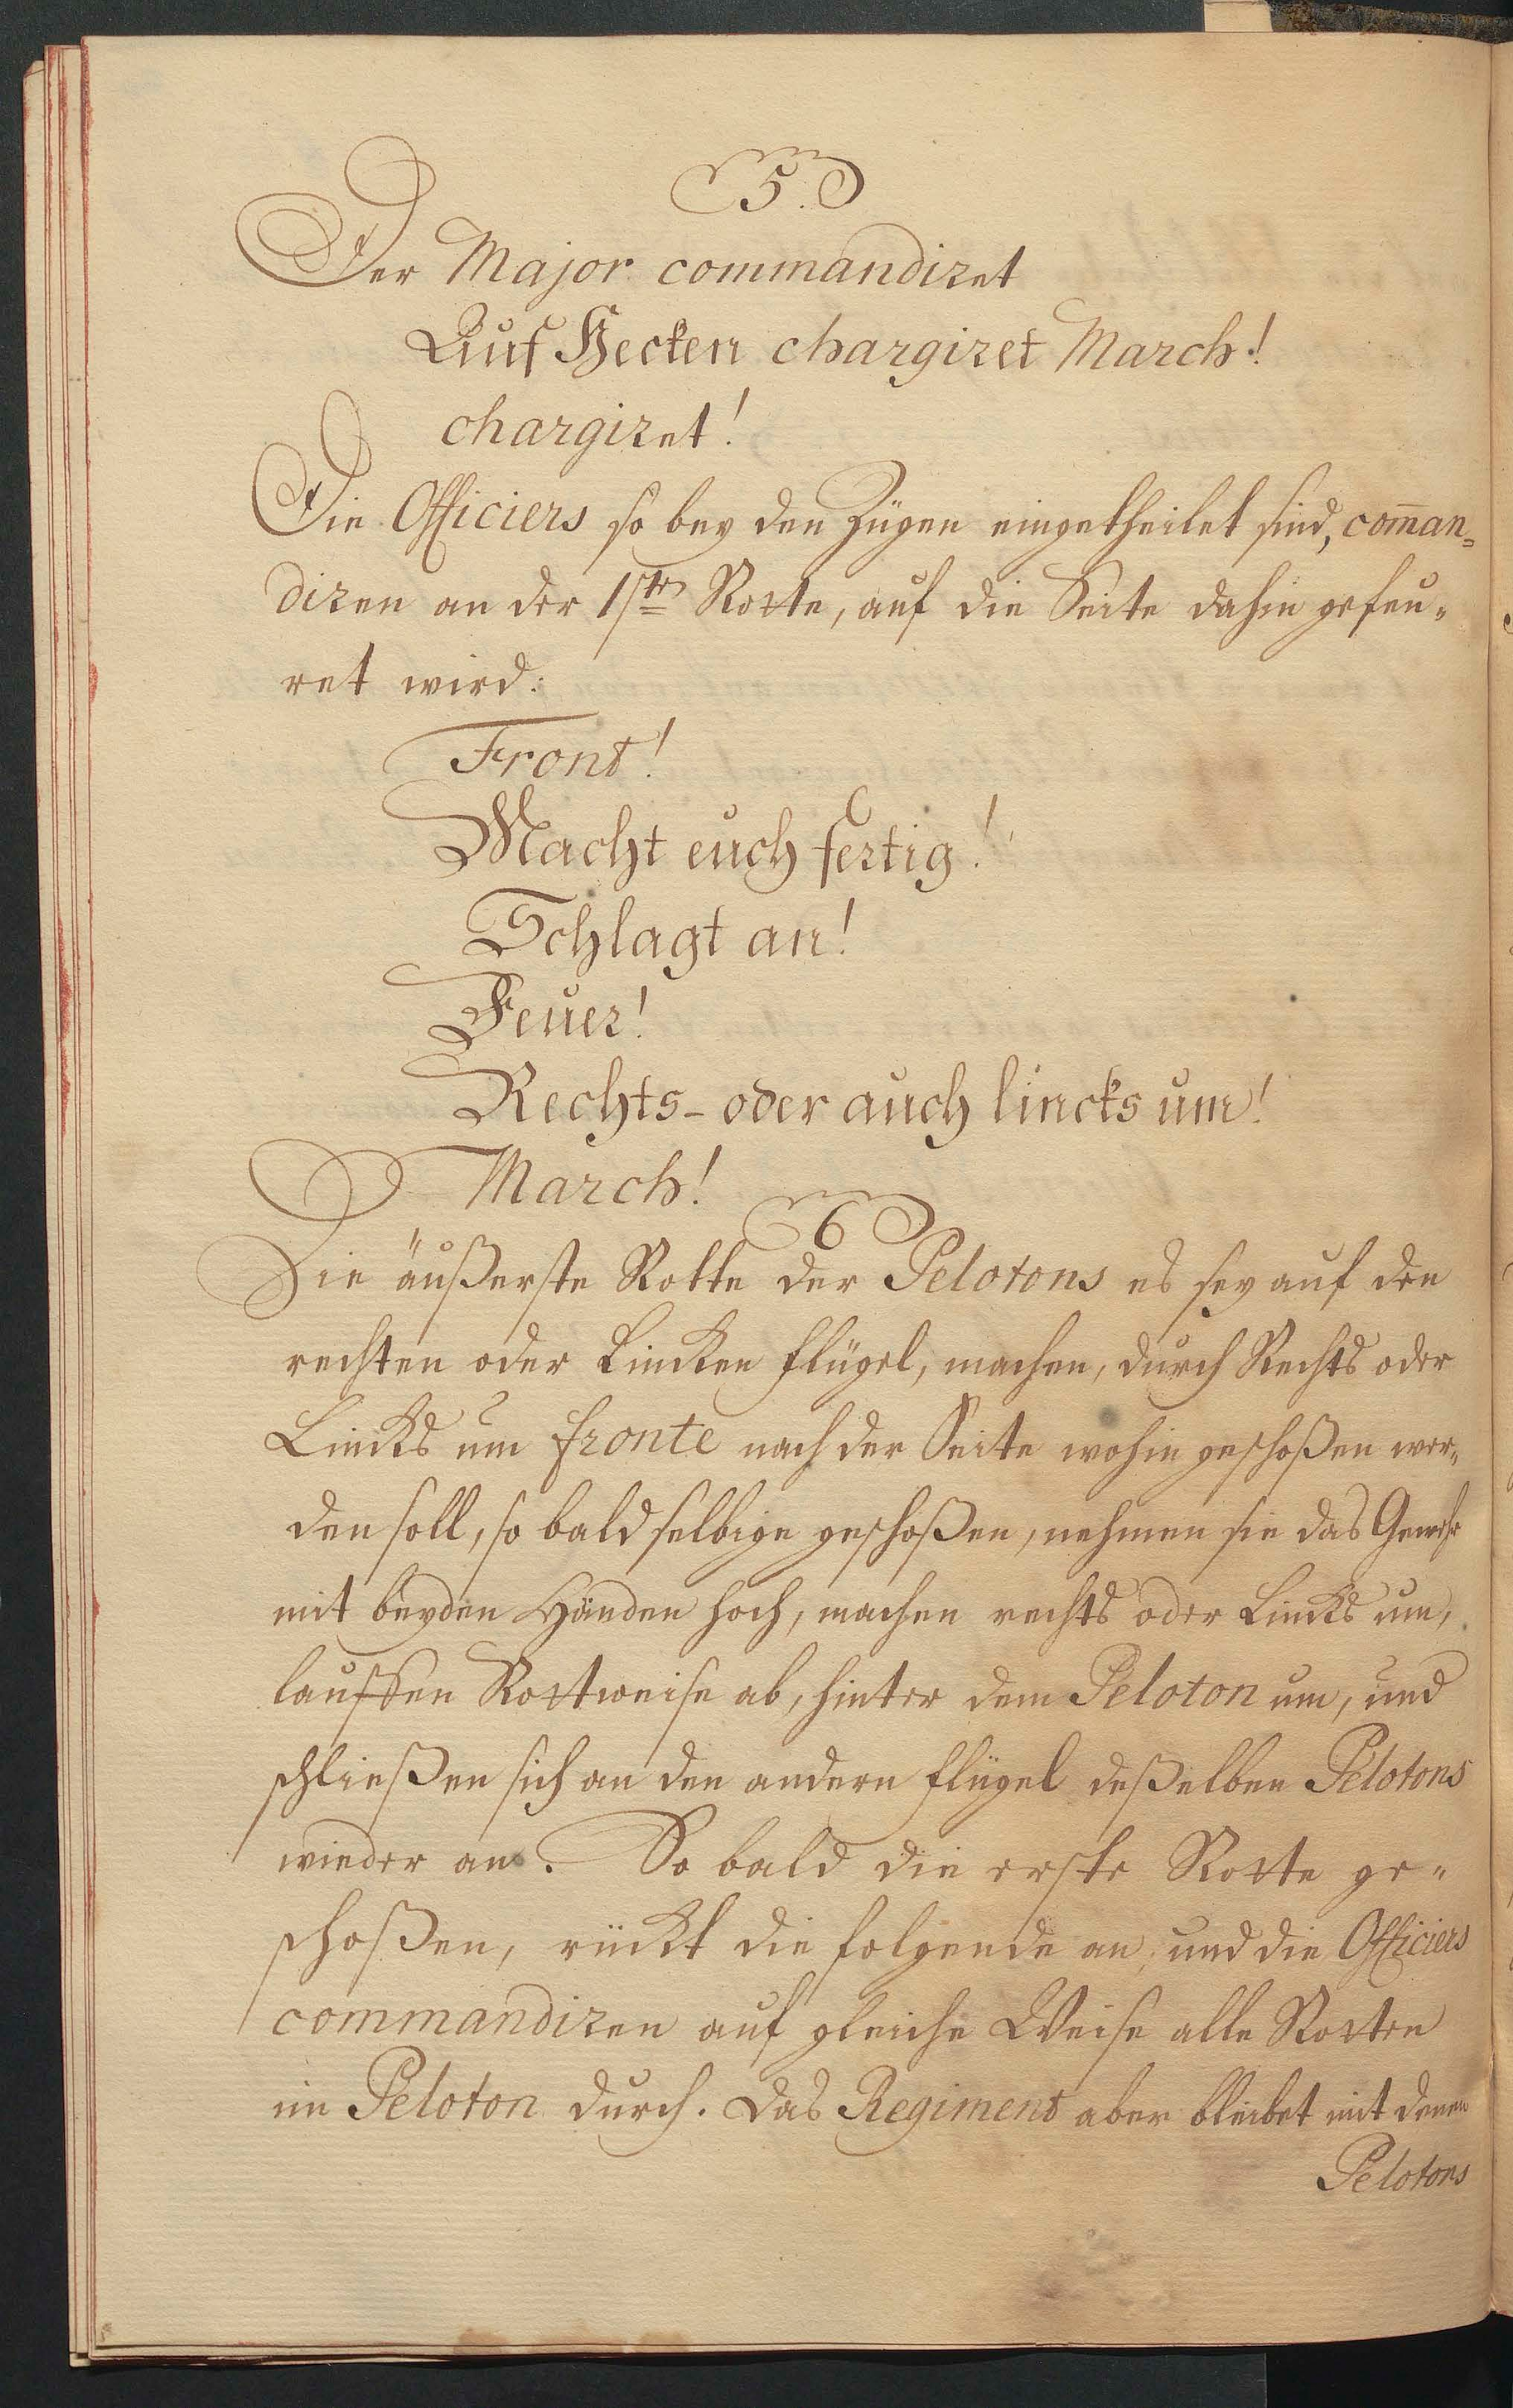 5.
Der Major commandiret
Auf Hecken chargiret March!
chargiret!
Die Officiers so bey den Zügen eingetheilet sind, com̄an=
diren an der 1ste Rotte, auf die Seite dahin gefeu=
ret wird:
Front!
Macht euch fertig!
Schlagt an!
Feuer!
Rechts- oder auch lincks um!
March!
6
Die äußerste Rotte der Pelotons es sey auf den
rechten oder Lincken Flügel, machen, durch Rechts oder
Lincks um fronte nach der Seite wohin geschoßen wer=
den soll, so bald selbige geschoßen, nehmen sie das Gewehr
mit beyden Händen hoch, machen rechts oder Lincks um,
lauffen Rottweise ab, hinter dem Peloton um, und
schließen sich an den andern Flügel deßelben Pelotons
wieder an. So bald die erste Rotte ge=
schoßen, rückt die folgende an, und die Officiers
commandiren auf gleiche Weise alle Rotten
im Peloton durch. Das Regiment aber bleibet mit denen
Pelotons